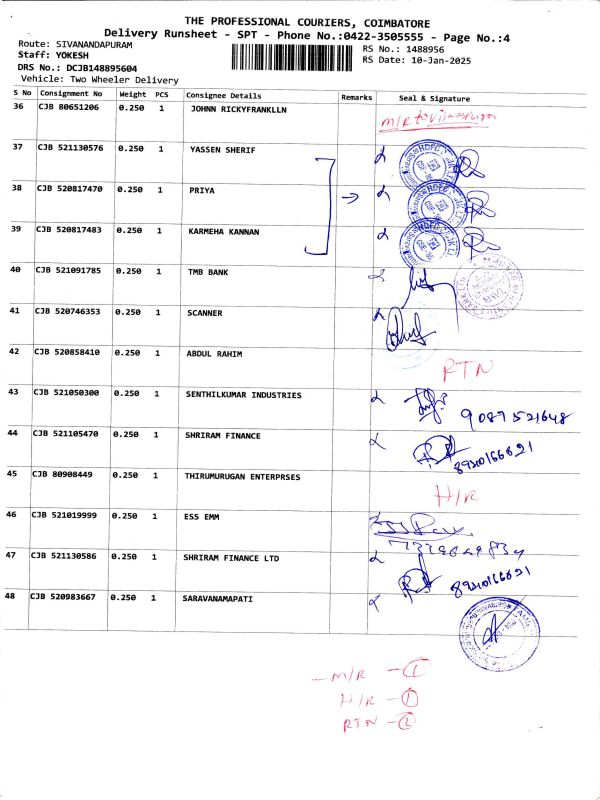 THE PROFESSIONAL COURIERS, COIMBATORE
Delivery Runsheet - SPT - Phone No.:0422-3505555 - Page No.:4
Route: SIVANANDAPURAM
RS No.: 1488956
Staff: YOKESH
RS Date: 10-Jan-2025
DRS No.: DCJB148895604
Vehicle: Two Wheeler Delivery
S No Consignment No Weight PCS Consignee Details Remarks Seal & Signature
36 CJB 80651206 0.250 1 JOHNN RICKYFRANKLLN M/R
37 CJB 521130576 0.250 1 YASSEN SHERIF HDFC
38 CJB 520817470 0.250 1 PRIYA HDFC
39 CJB 520817483 0.250 1 KARMEHA KANNAN HDFC
40 CJB 521091785 0.250 1 TMB BANK
41 CJB 520746353 0.250 1 SCANNER
42 CJB 520858410 0.250 1 ABDUL RAHIM RTN
43 CJB 521050300 0.250 1 SENTHILKUMAR INDUSTRIES
44 CJB 521105470 0.250 1 SHRIRAM FINANCE
45 CJB 80908449 0.250 1 THIRUMURUGAN ENTERPRSES H/R
46 CJB 521019999 0.250 1 ESS EMM
47 CJB 521130586 0.250 1 SHRIRAM FINANCE LTD
48 CJB 520983667 0.250 1 SARAVANAMAPATI
- M/R - 1
H/R - 1
RTN - 2